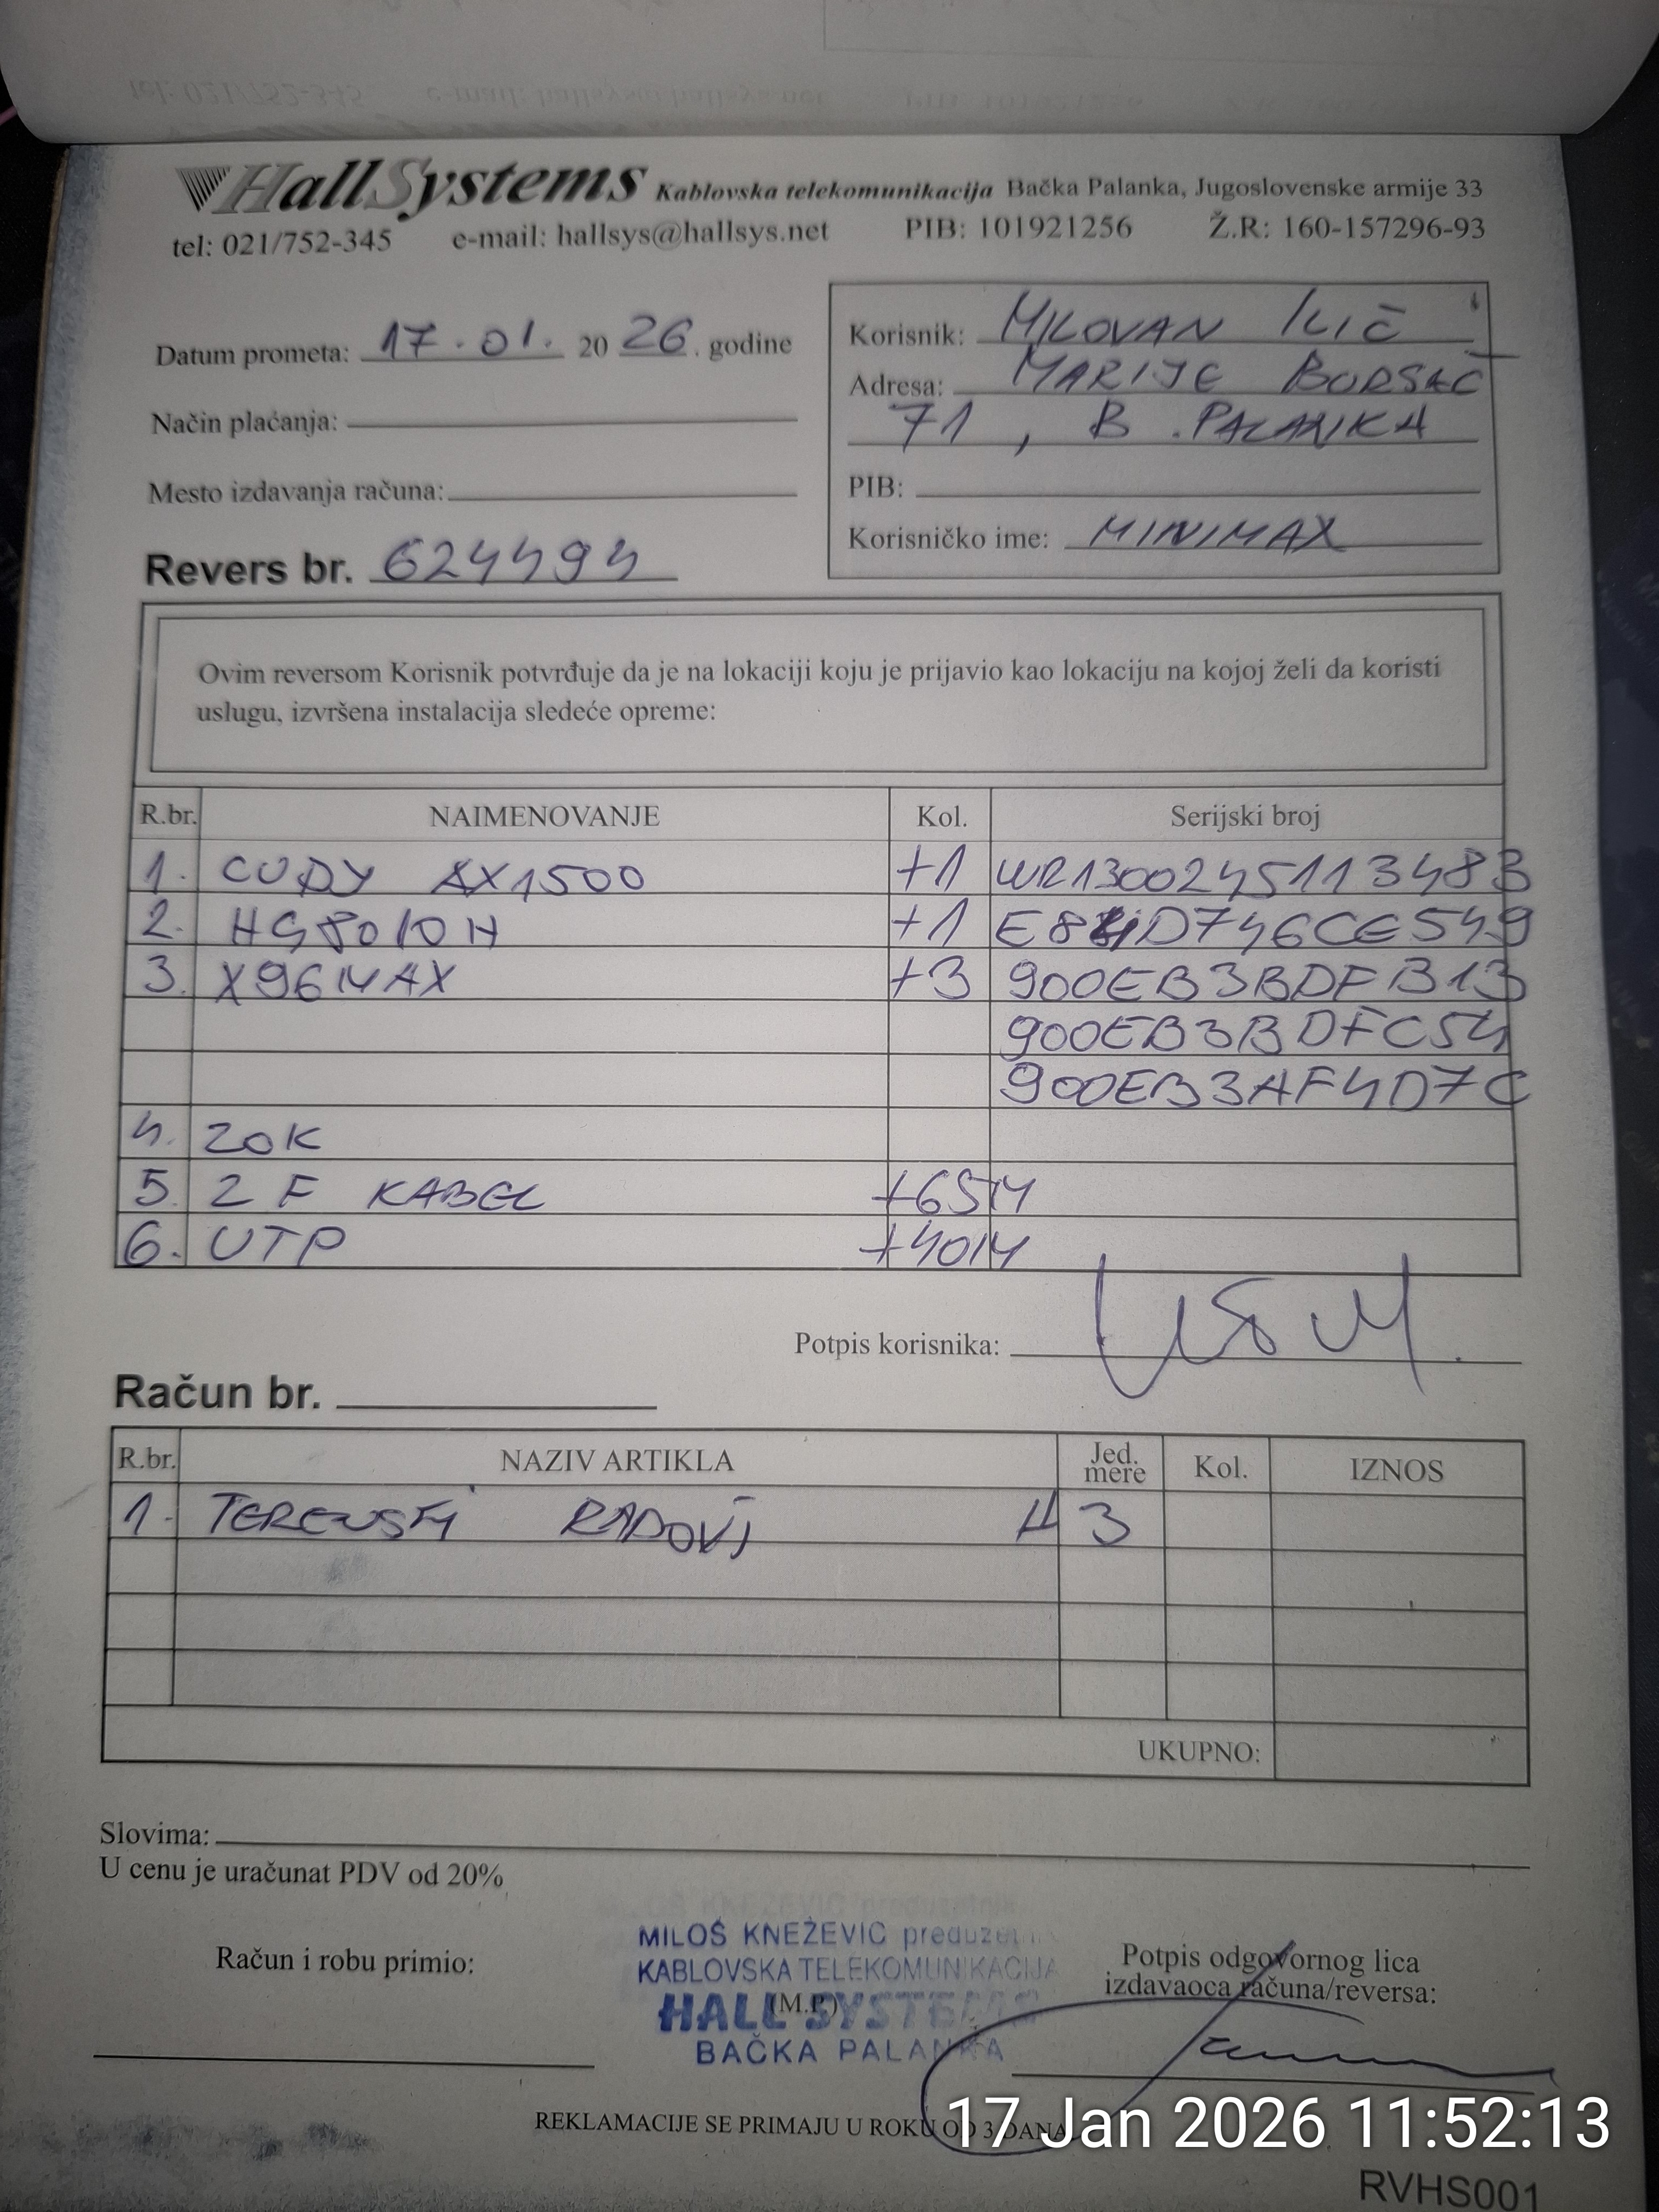 HallSystems Kablovska telekomunikacija Bačka Palanka, Jugoslovenske armije 33
tel: 021/752-345 e-mail: hallsys@hallsys.net PIB: 101921256 Ž.R: 160-157296-93
Datum prometa: 17.01. 20 26. godine
Način plaćanja:
Mesto izdavanja računa:
Revers br. 624494
Korisnik: MILOVAN ILIĆ
Adresa: MARIJE BURSAĆ
71, B. PALANKA
PIB:
Korisničko ime: MINIMAX
Ovim reversom Korisnik potvrđuje da je na lokaciji koju je prijavio kao lokaciju na kojoj želi da koristi
uslugu, izvršena instalacija sledeće opreme:
R.br. NAIMENOVANJE Kol. Serijski broj
1. CUDY AX1500 +1 WR1300245113483
2. HG8010H +1 D746CE549
3. X96MAX +3 900EB3BDFB13
900EB3BDFC54
900EB3AF4D7C
4. ZOK
5. 2F KABEL +65M
6. UTP +40M
Potpis korisnika:
Račun br.
R.br. NAZIV ARTIKLA Jed. mere Kol. IZNOS
1. TERENSKI RADOVI H 3
UKUPNO:
Slovima:
U cenu je uračunat PDV od 20%
Račun i robu primio:
MILOŠ KNEŽEVIĆ preduzetnik
KABLOVSKA TELEKOMUNIKACIJA
(M.P.)
HALL SYSTEMS
BAČKA PALANKA
Potpis odgovornog lica
izdavaoca računa/reversa:
REKLAMACIJE SE PRIMAJU U ROKU OD 3 DANA
17 Jan 2026 11:52:13
RVHS001